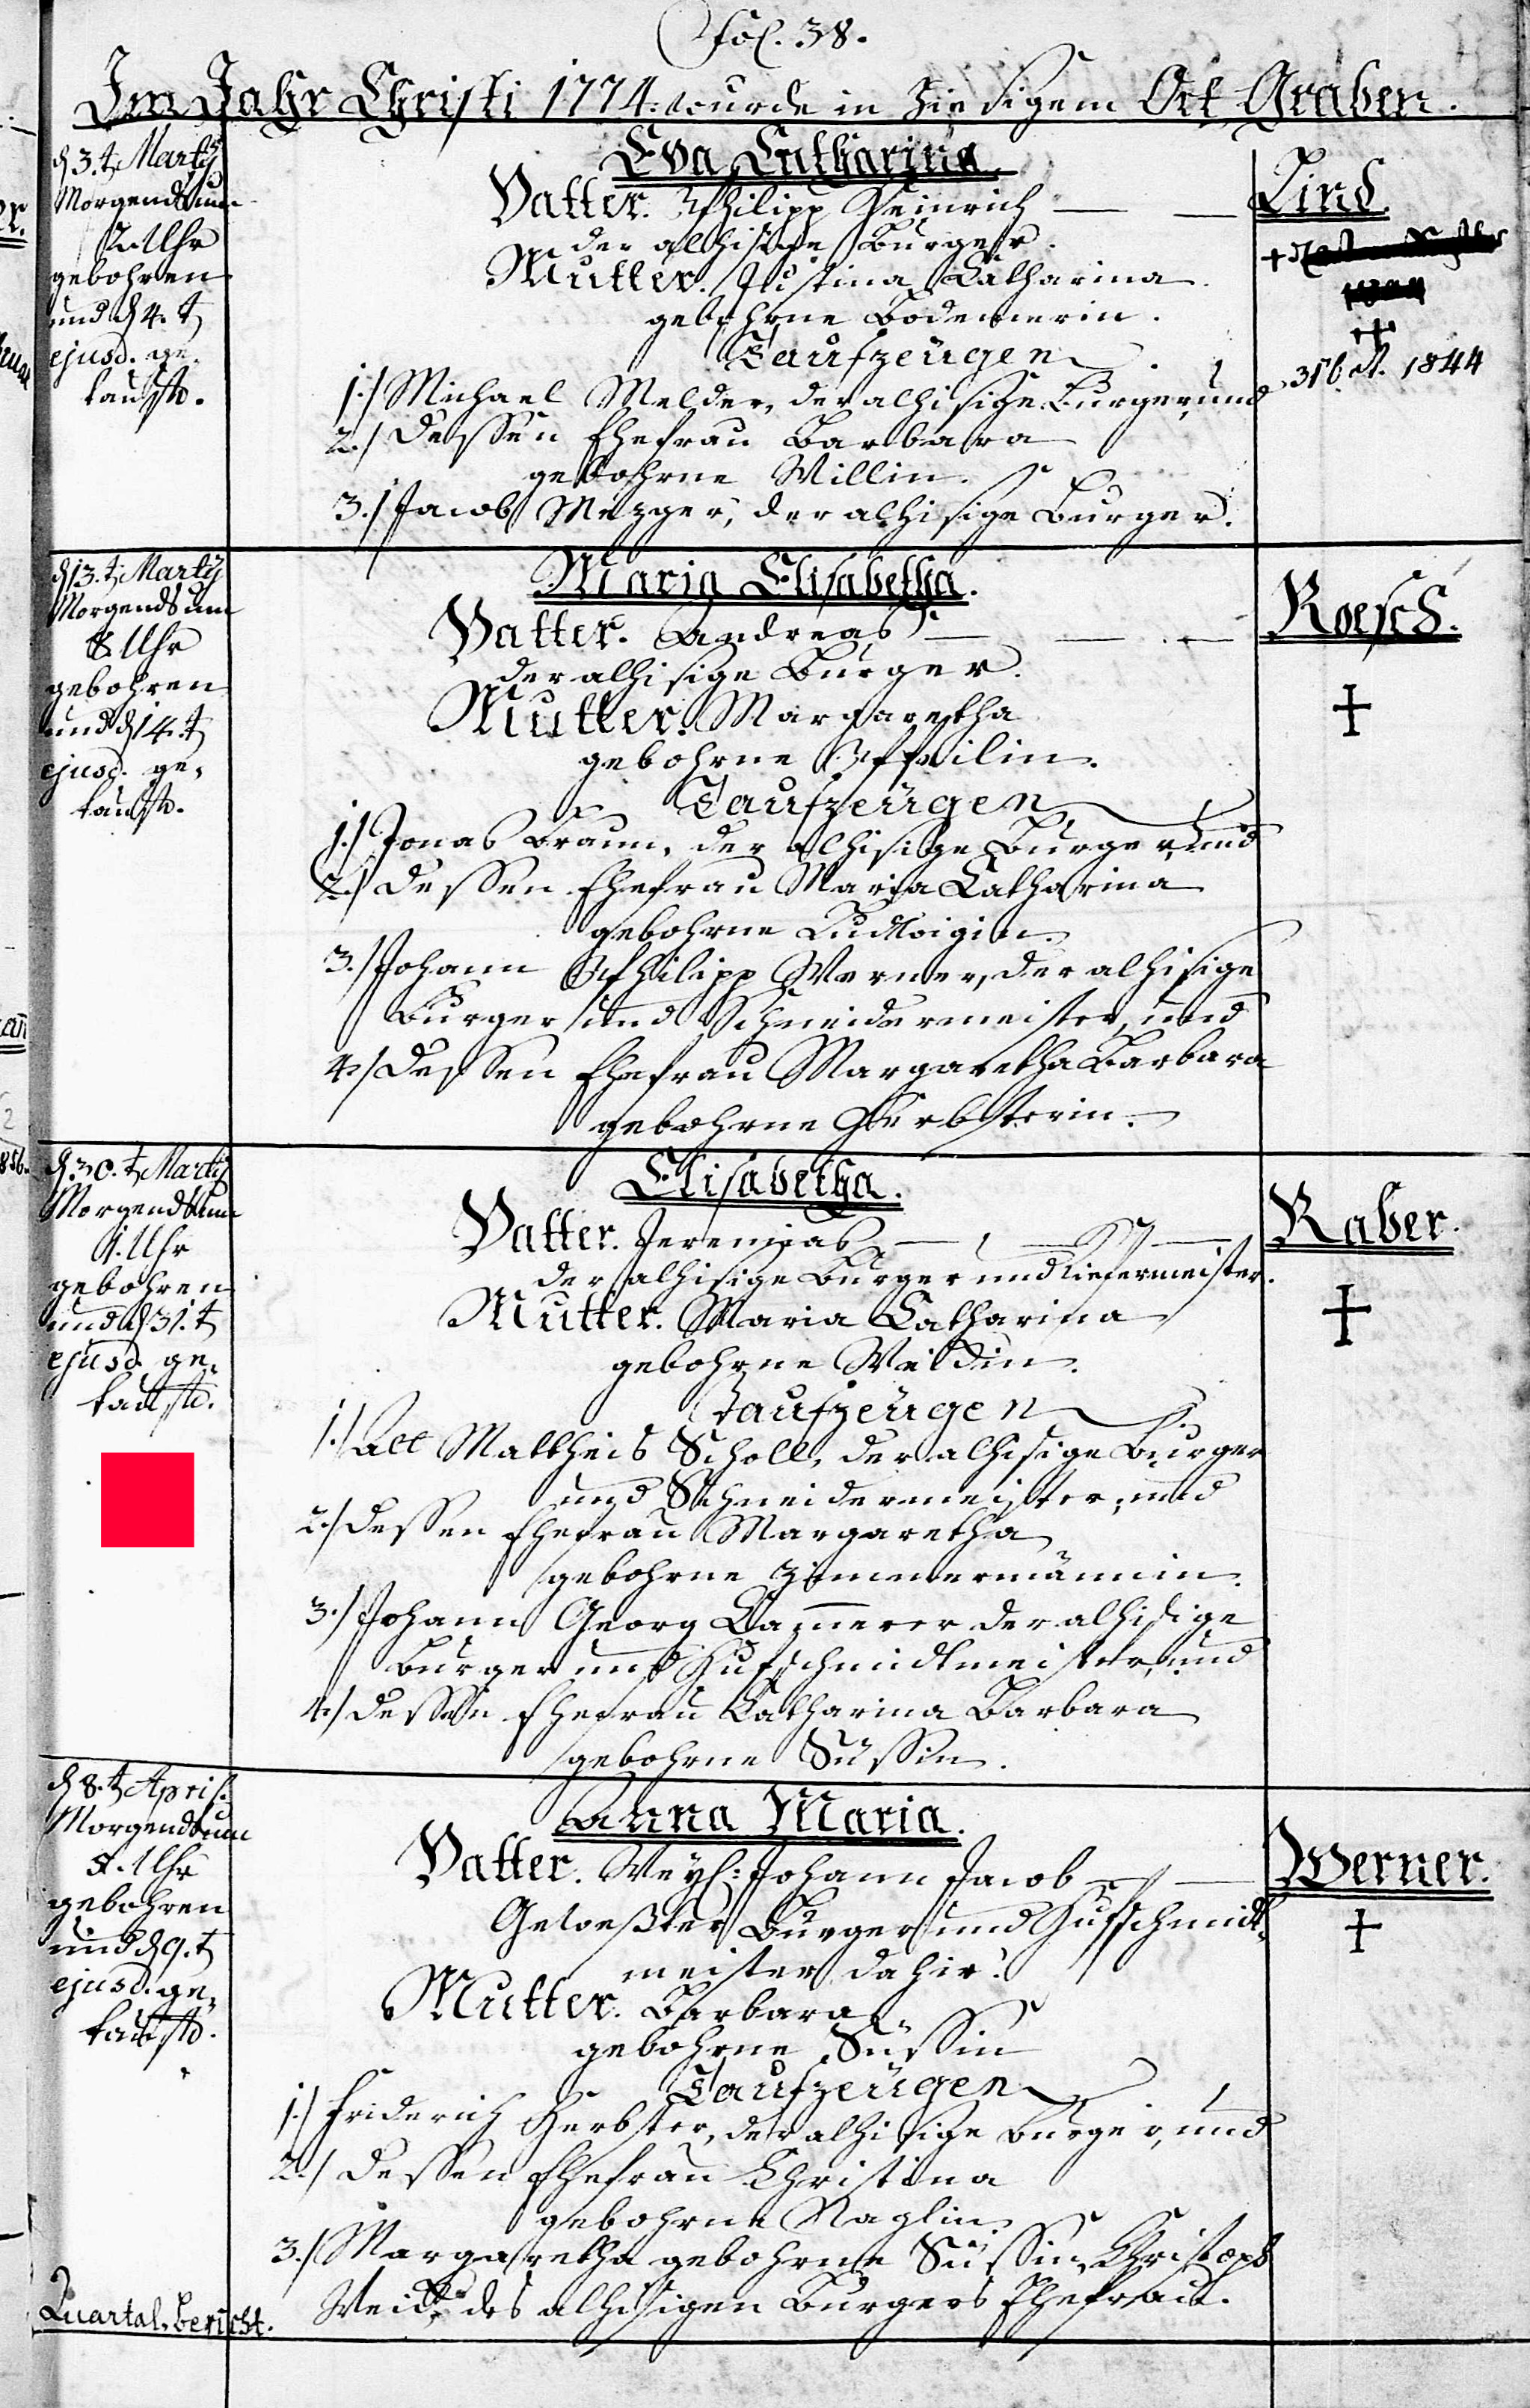 Fol. 38.
Im Jahr Christi 1774. wurde in hiesigem Ort Graben.
d 3.t Martij
Morgends um
2. Uhr
gebohren
und d 4.t
ejusd. ge-
taufft.
Eva Catharina.
Vatter. Philipp Heinrich
der alhisige Burger.
Mutter. Justina Catharina
gebohrne Bodemerin.
Taufzeügen
1./ Michael Melder, der alhisige Burger, und
2./ Dessen Ehefrau Barbara
gebohrne Willin.
3./ Jacob Mezger, der alhisige Burger.
Lind.
+
+
1844
d 13.t Martij
Morgends um
8 Uhr
gebohren
und d 14.t
ejusd. ge-
taufft.
Maria Elisabetha.
Vatter. Andreas
der alhisige Burger.
Mutter. Margaretha
gebohrne Pfeilin.
Taufzeügen
1./ Jonas Braun, der alhisige Burger, und
2./ Dessen Ehefrau Maria Catharina
gebohrne Ludwigin.
3./ Johann Philipp Werner, der alhisige
Burger und Schneidermeister, und
4./ Dessen Ehefrau Margaretha Barbara
gebohrne Herbsterin.
Roesch.
+
d 30.t Martij
Morgends um
1. Uhr
gebohren
und d 31.t
ejusd. ge-
taufft.
Elisabetha.
Vatter. Jeremias
der alhisige Burger und Kiefermeister.
Mutter. Maria Catharina
gebohrne Weldin.
Taufzeügen
1./ Alt Mattheis Scholl, der alhisige Burger
und Schneidermeister, und
2./ Dessen Ehefrau Margaretha
gebohrne Zimmermännin.
3./ Johann Georg Cammerer der alhisige
Burger und Hufschmidtmeister, und
4./ Dessen Ehefrau Catharina Barbara
gebohrne Süssin.
Raber.
+
d 8.t April.
Morgends um
Uhr
gebohren
und d 9.t
ejusd. ge-
taufft.
Anna Maria.
Vatter. Weyl: Johann Jacob
Geweßter Burger und Hufschmidt-
meister dahir.
Mutter. Barbara
gebohrne Süssin
Taufzeügen
1./ Friderich Herbster, der alhisige Burger, und
2./ Dessen Ehefrau Christina
gebohrne Naglin.
3./ Margaretha gebohrne Süssin, Christoph
des alhisigen Burgers Ehefrau.
Werner.
+
Quartal-bericht.